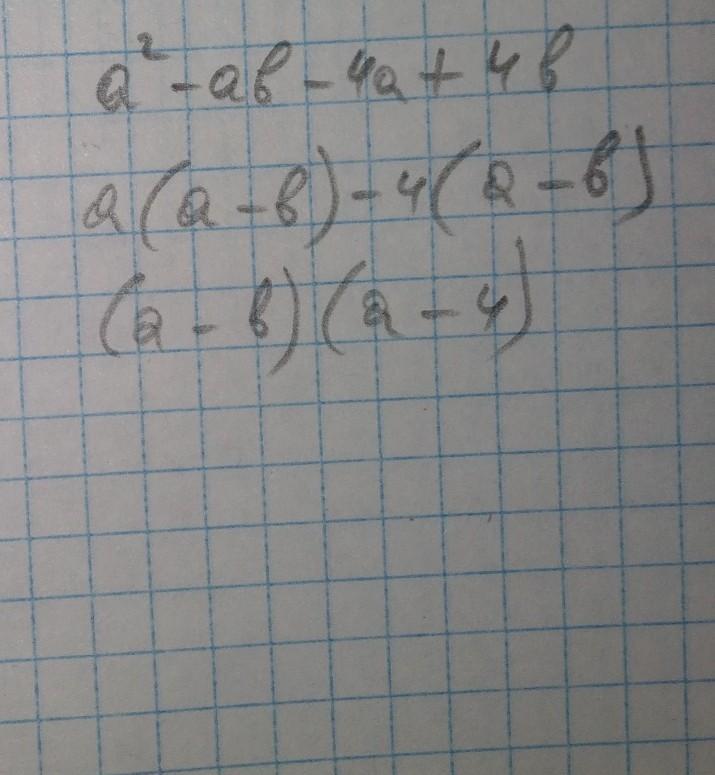 a² - ab - 4a + 4b
a(a - b) - 4(a - b)
(a - b)(a - 4)